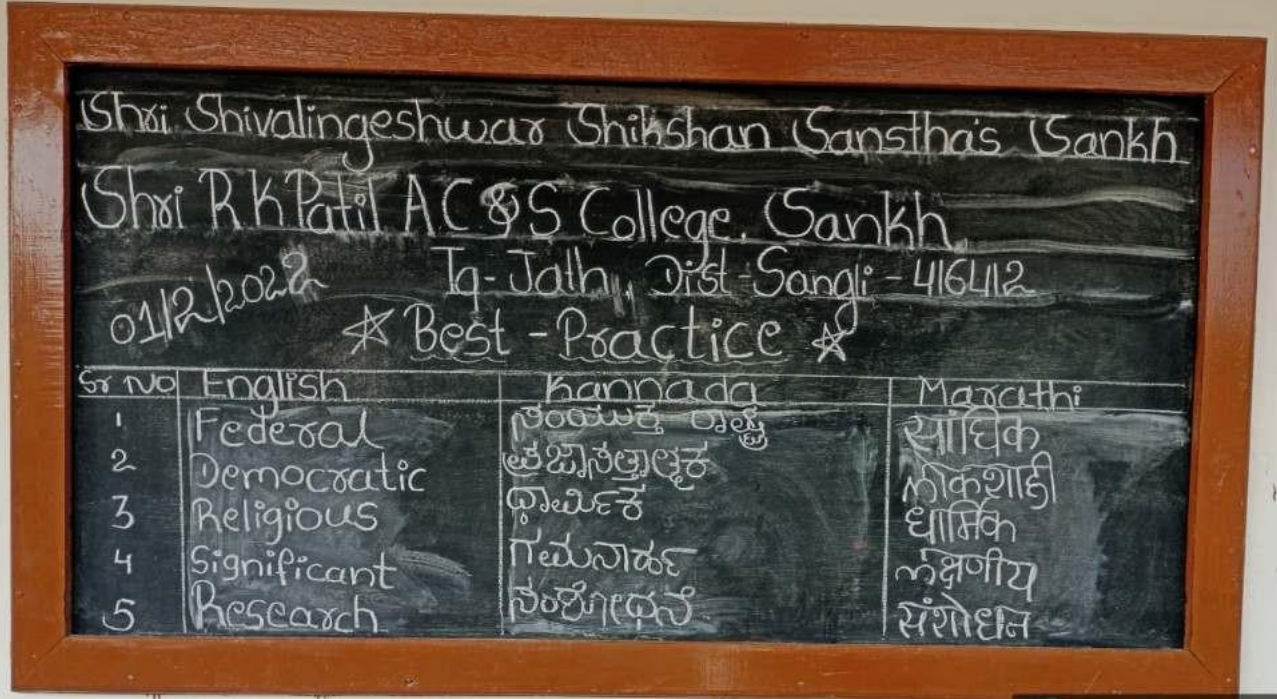 Shri Shivalingeshwar Shikshan Sanstha's Sankh
Shri R K Patil A C & S College, Sankh,
01/2/2022 Tq - Jath, Dist - Sangli - 416412
☆ Best - Practice ☆
Sr No English Kannada Marathi
1 Federal ಸಂಯುಕ್ತ ರಾಷ್ಟ್ರ सांघिक
2 Democratic ಪ್ರಜಾಸತ್ತಾತ್ಮಕ लोकशाही
3 Religious ಧಾರ್ಮಿಕ धार्मिक
4 Significant ಗಮನಾರ್ಹ लक्षणीय
5 Research ಸಂಶೋಧನೆ संशोधन